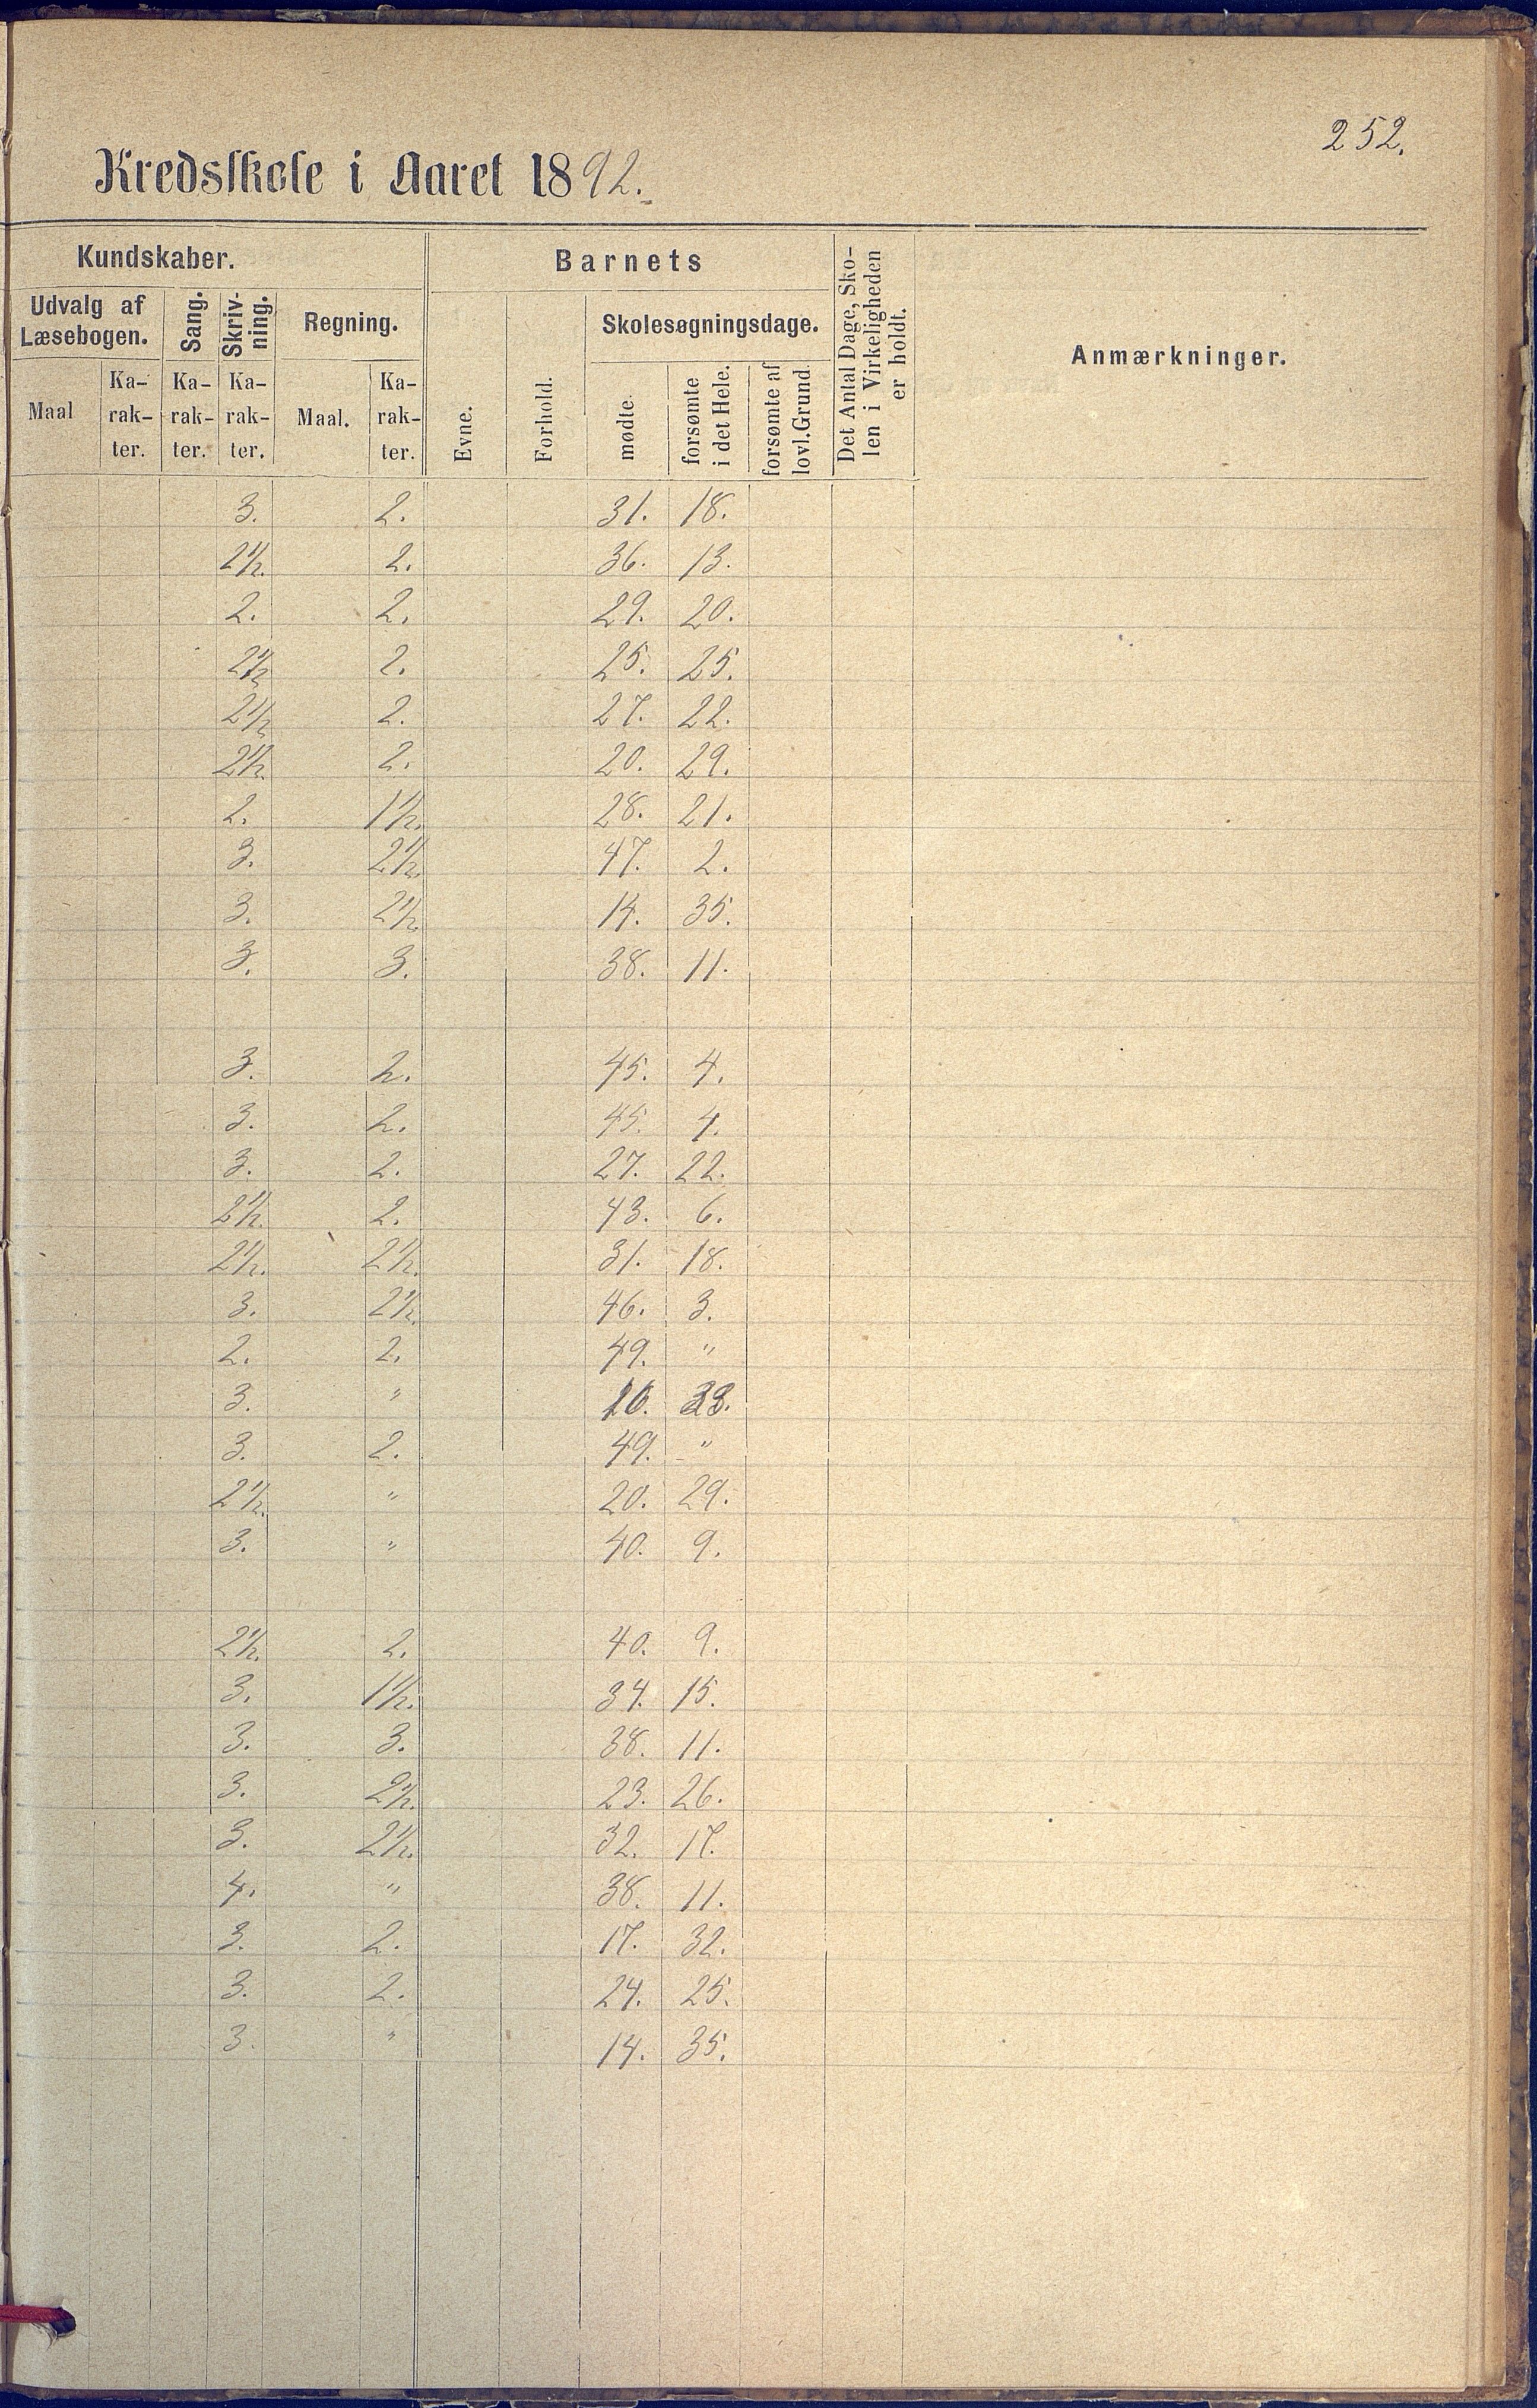 252.
Kredsskole i Aaret 1892.
Kundskaber. Barnets Det Antal Dage, Sko-
len i Virkeligheden
er holdt. Anmærkninger.
Udvalg af
Læsebogen. Sang. Skriv-
ning. Regning. Skolesøgningsdage.
Maal Ka-
rak-
ter. Ka-
rak-
ter. Ka-
rak-
ter. Maal. Ka-
rak-
ter. Evne. Forhold. mødte. forsømte
i det Hele. forsømte af
lovl. Grund.
3. 2. 31. 18.
2½. 2. 36. 13.
2. 2. 29. 20.
2½ 2. 25. 25.
2½ 2. 27. 22.
2½. 2. 20. 29.
2. 1½. 28. 21.
3. 2½. 47. 2.
3. 2½. 14. 35.
3. 3. 38. 11.
3. 2. 45. 4.
3. 2. 45. 4.
3. 2. 27. 22.
2½. 2. 43. 6.
2½. 2½. 31. 18.
3. 2½. 46. 3.
2. 2. 49. "
3. " 16. 33.
3. 2. 49. "
2½. " 20. 29.
3. " 40. 9.
2½. 2. 40. 9.
3. 1½. 34. 15.
3. 3. 38. 11.
3. 2½. 23. 26.
3. 2½. 32. 17.
4. " 38. 11.
3. 2. 17. 32.
3. 2. 24. 25.
3. " 14. 35.